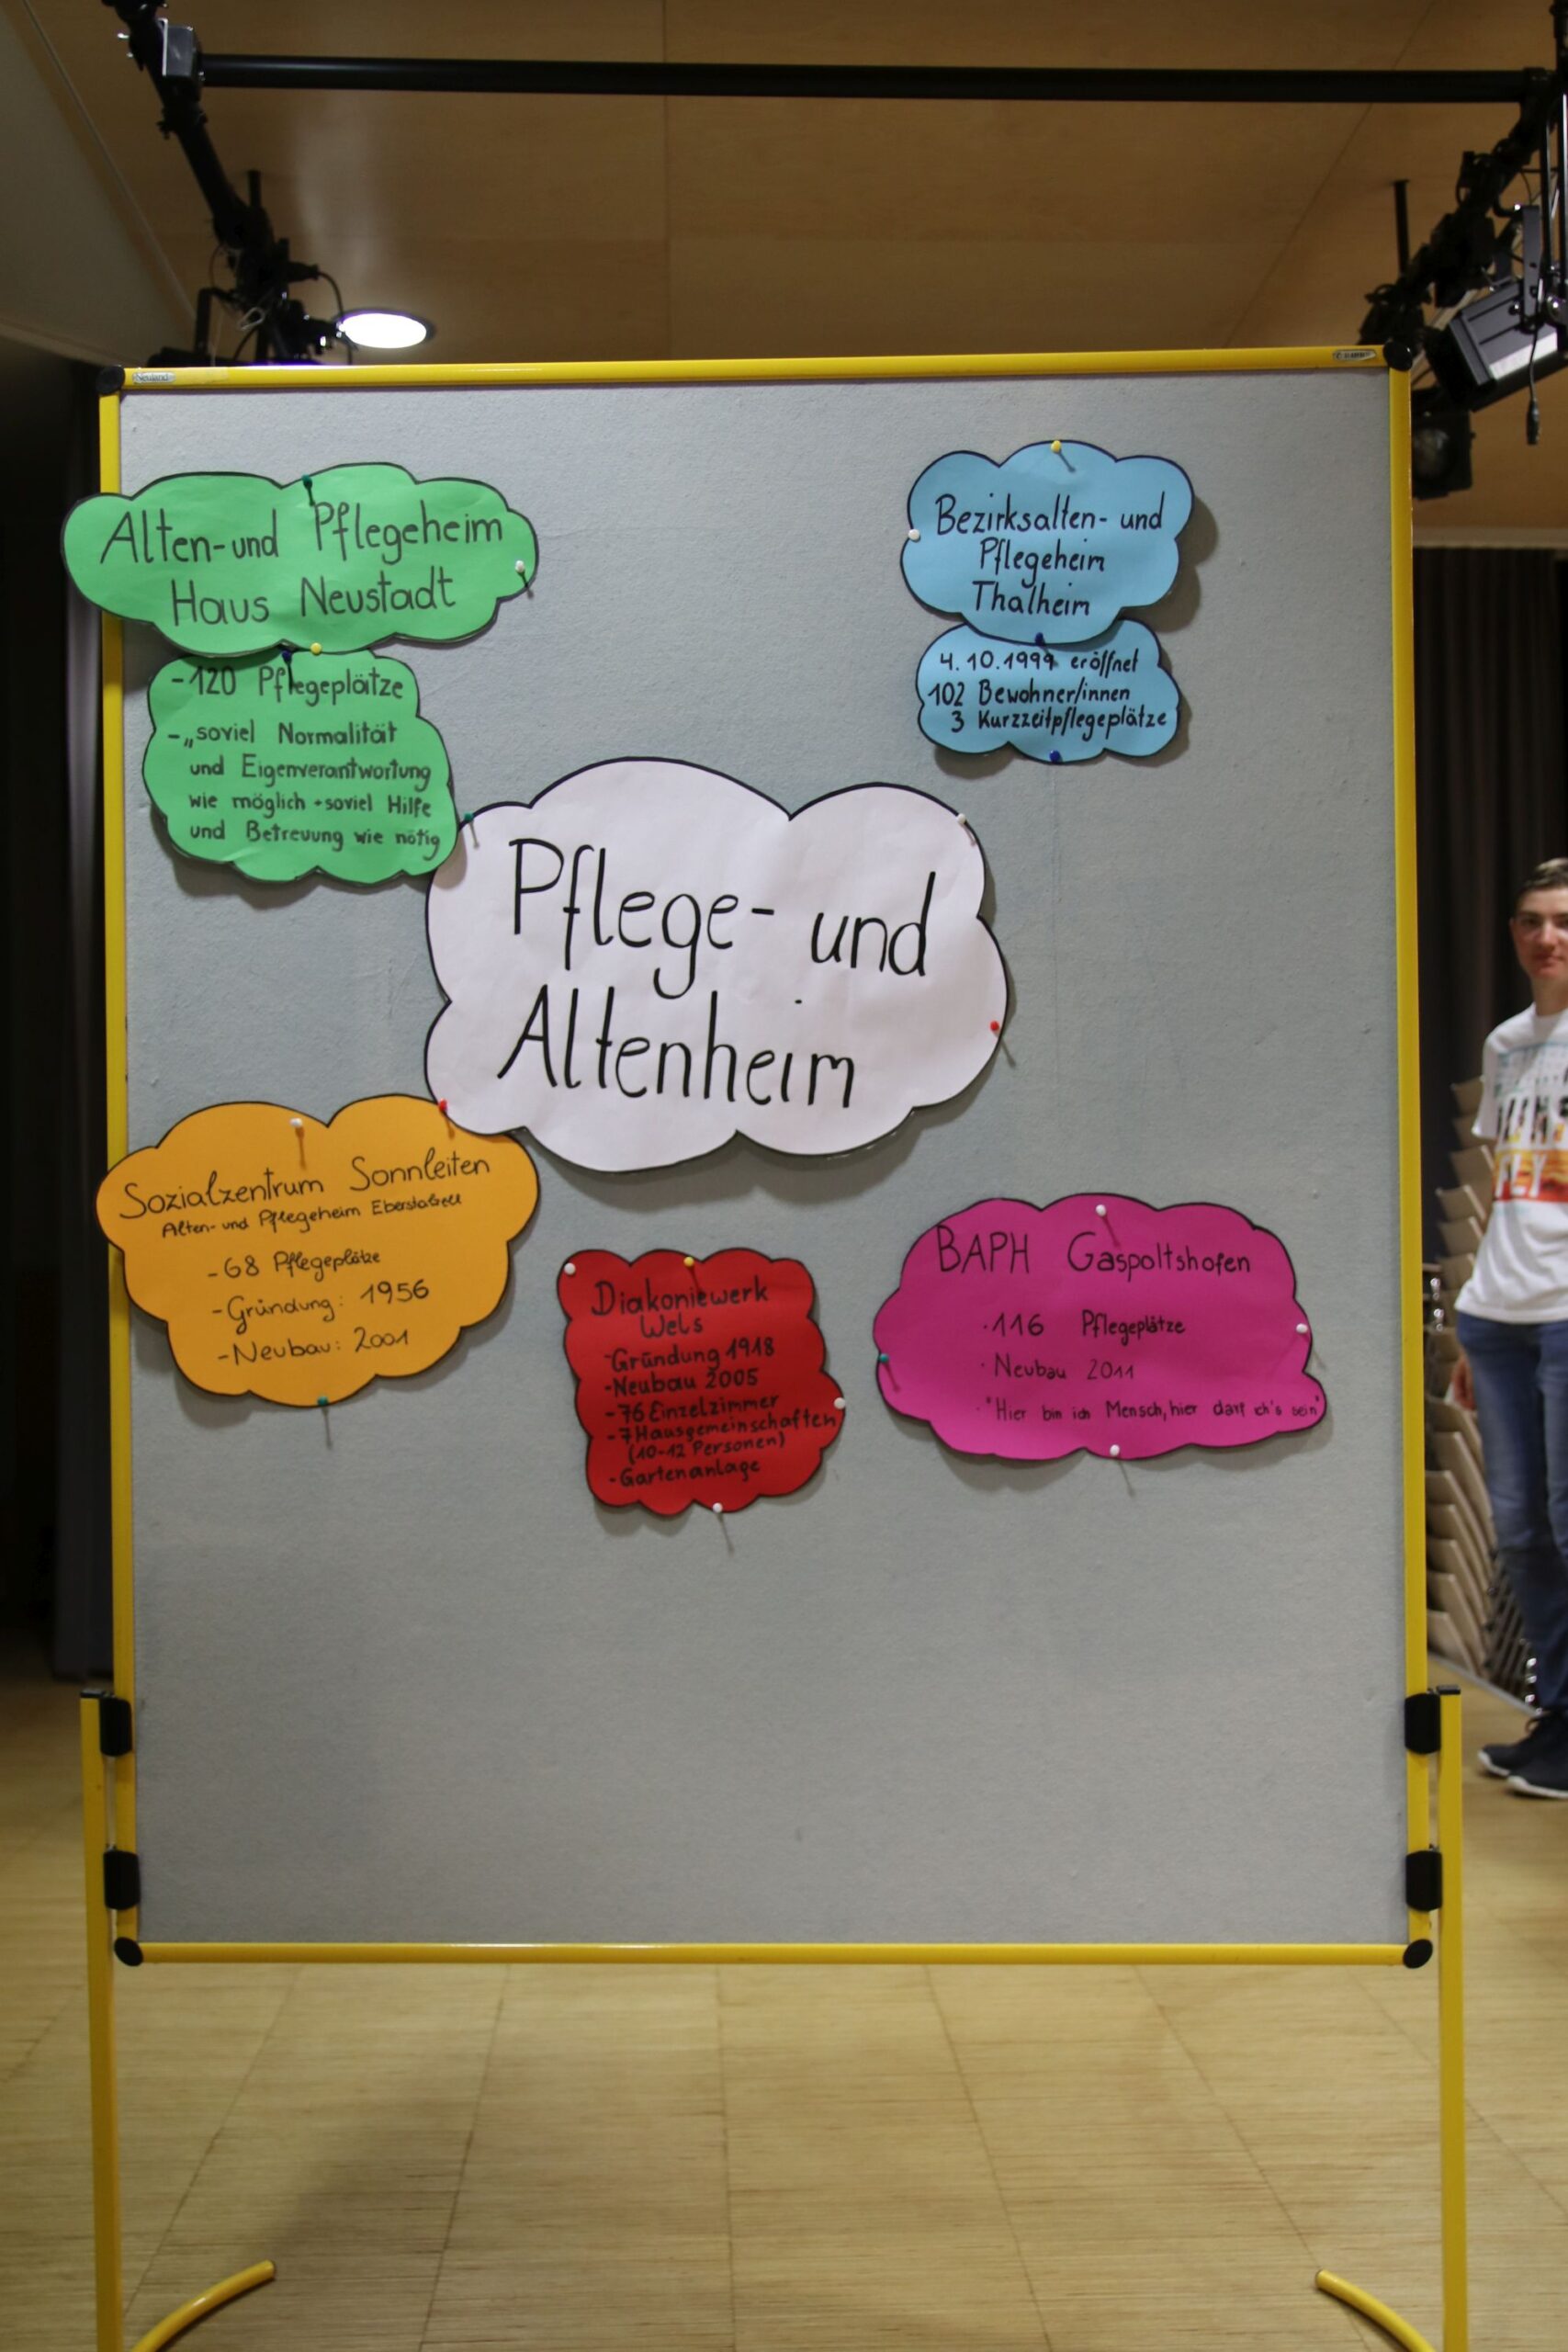 Neuland
Alten- und Pflegeheim
Haus Neustadt
-120 Pflegeplätze
-„soviel Normalität
und Eigenverantwortung
wie möglich + soviel Hilfe
und Betreuung wie nötig
Bezirksalten- und
Pflegeheim
Thalheim
4.10.1999 eröffnet
102 Bewohner/innen
3 Kurzzeitpflegeplätze
Pflege- und
Altenheim
Sozialzentrum Sonnleiten
Alten- und Pflegeheim Eberstalzell
-68 Pflegeplätze
-Gründung: 1956
-Neubau: 2001
Diakoniewerk
Wels
-Gründung 1918
-Neubau 2005
-76 Einzelzimmer
-7 Hausgemeinschaften
(10-12 Personen)
-Gartenanlage
BAPH Gaspoltshofen
·116 Pflegeplätze
·Neubau 2011
·"Hier bin ich Mensch, hier darf ich's sein"
FLY